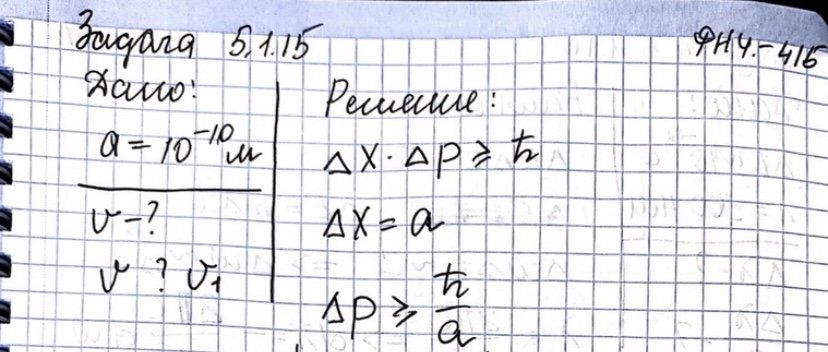 Задача 5.1.15
ФН4.-41Б
Дано:
a = 10⁻¹⁰ м
v - ?
v ? v₁
Решение:
Δx · Δp ⩾ ℏ
Δx = a
Δp ⩾ ℏ/a